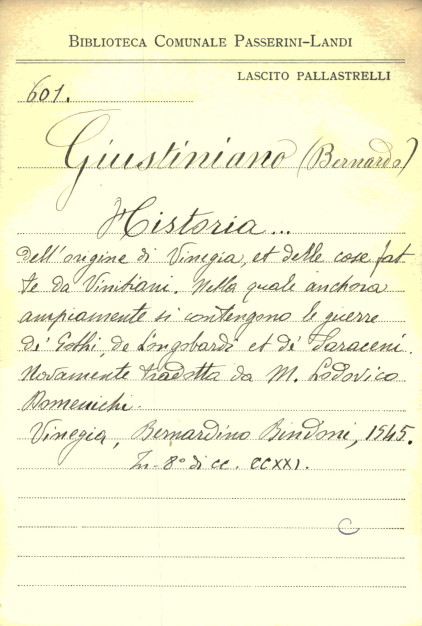 BIBLIOTECA COMUNALE PASSERINI-LANDI
LASCITO PALLASTRELLI
601.
Giustiniano (Bernardo)
Historia...
dell'origine di Vinegia, et delle cose fat
te da Vinitiani. Nella quale anchora
ampiamente si contengono le guerre
de' Gothi, de Longobardi et de' Saraceni.
Novamente tradotta da M. Lodovico
Domenichi.
Vinegia, Bernardino Bindoni, 1545.
In-8° di cc. CCXXI.
C